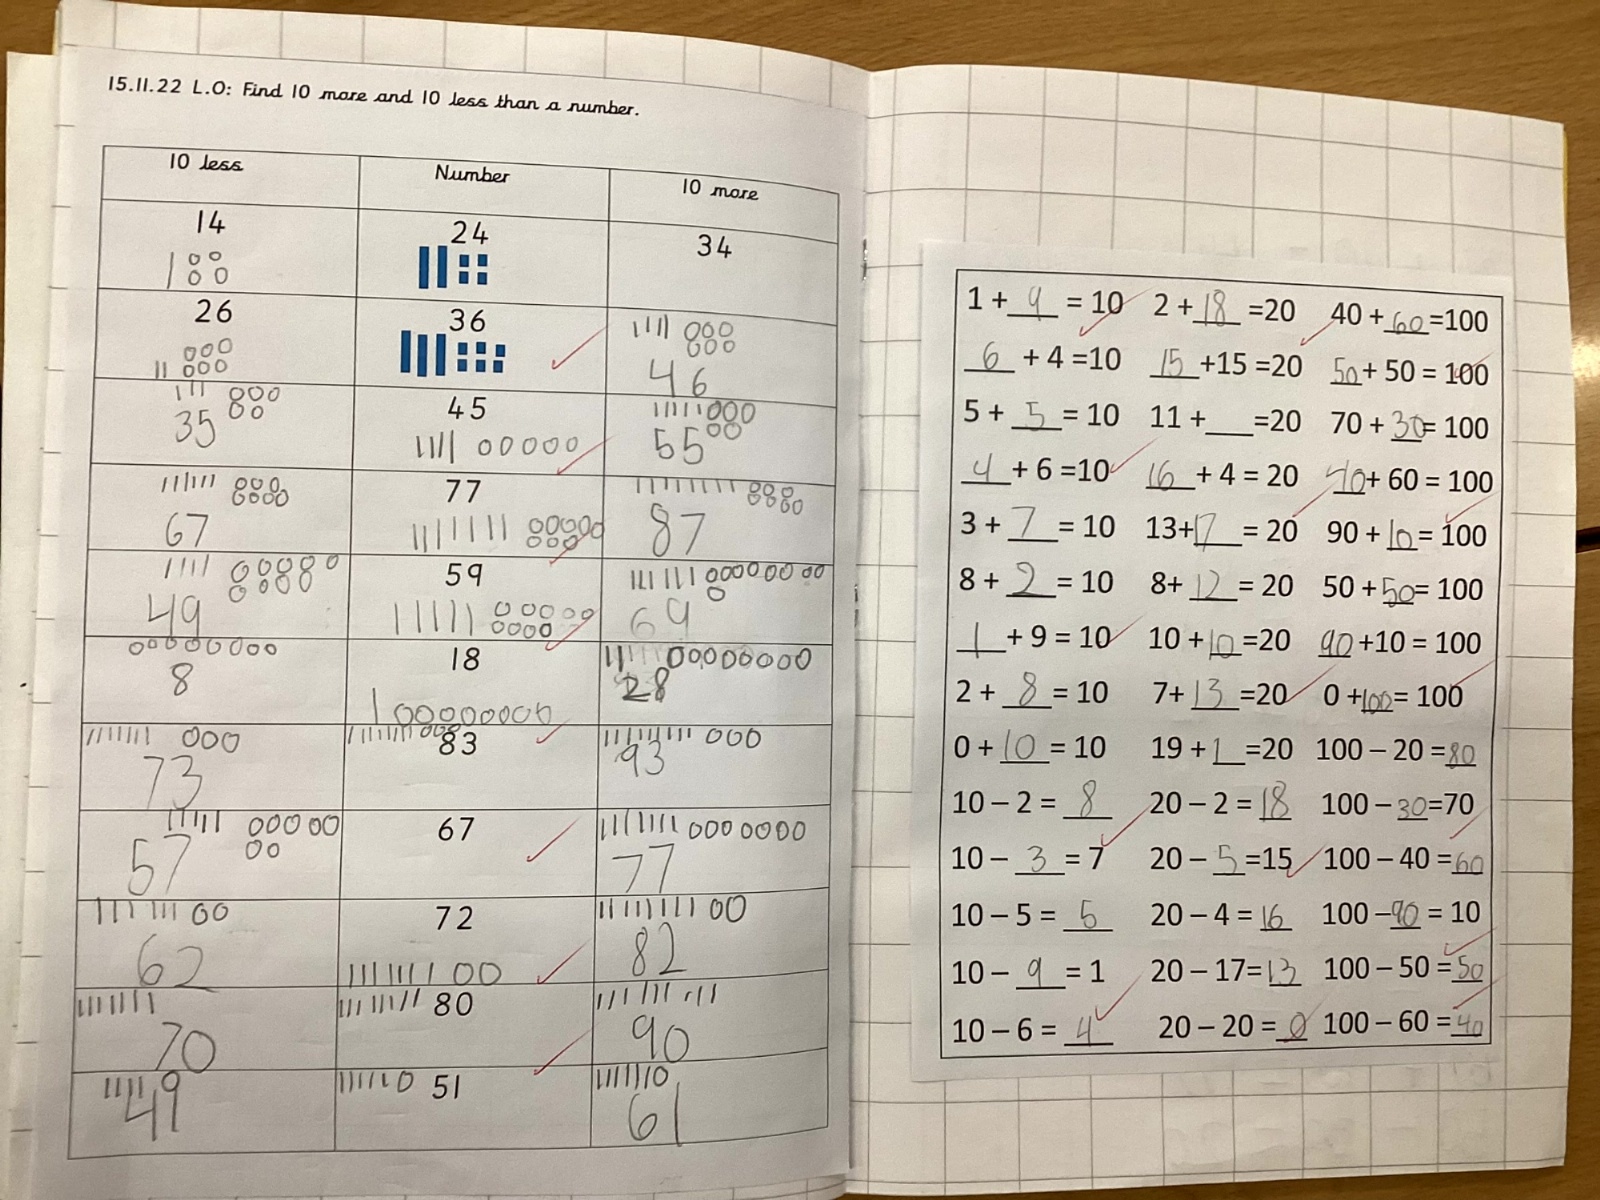 15.11.22 L.O: Find 10 more and 10 less than a number.
10 less Number 10 more
14 24 34
26 36 46
35 45 55
67 77 87
49 59 69
8 18 28
73 83 93
57 67 77
62 72 82
70 80 90
49 51 61
1 + 9 = 10 2 + 18 =20 40 + 60 =100
6 + 4 =10 15 +15 =20 50 + 50 = 100
5 + 5 = 10 11 + ___ =20 70 + 30 = 100
4 + 6 =10 16 + 4 = 20 40 + 60 = 100
3 + 7 = 10 13+ 17 = 20 90 + 10 = 100
8 + 2 = 10 8+ 12 = 20 50 + 50 = 100
1 + 9 = 10 10 + 10 =20 90 +10 = 100
2 + 8 = 10 7+ 13 =20 0 + 100 = 100
0 + 10 = 10 19 + 1 =20 100 – 20 = 80
10 – 2 = 8 20 – 2 = 18 100 – 30 =70
10 – 3 = 7 20 – 5 =15 100 – 40 = 60
10 – 5 = 5 20 – 4 = 16 100 – 90 = 10
10 – 9 = 1 20 – 17= 13 100 – 50 = 50
10 – 6 = 4 20 – 20 = 0 100 – 60 = 40